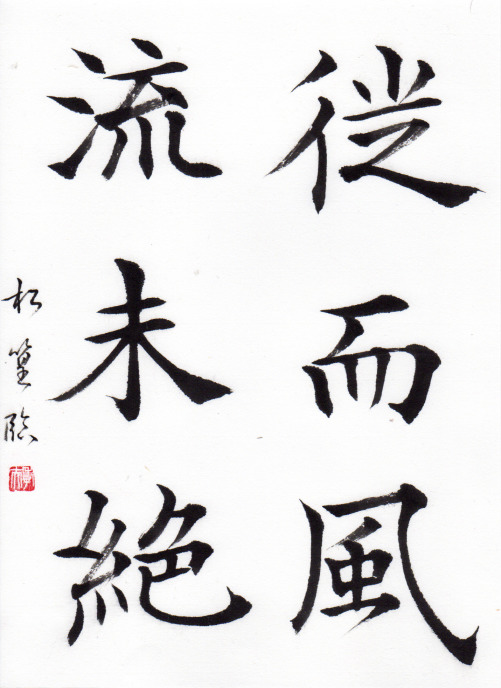 従而風
流未絶
松篁臨